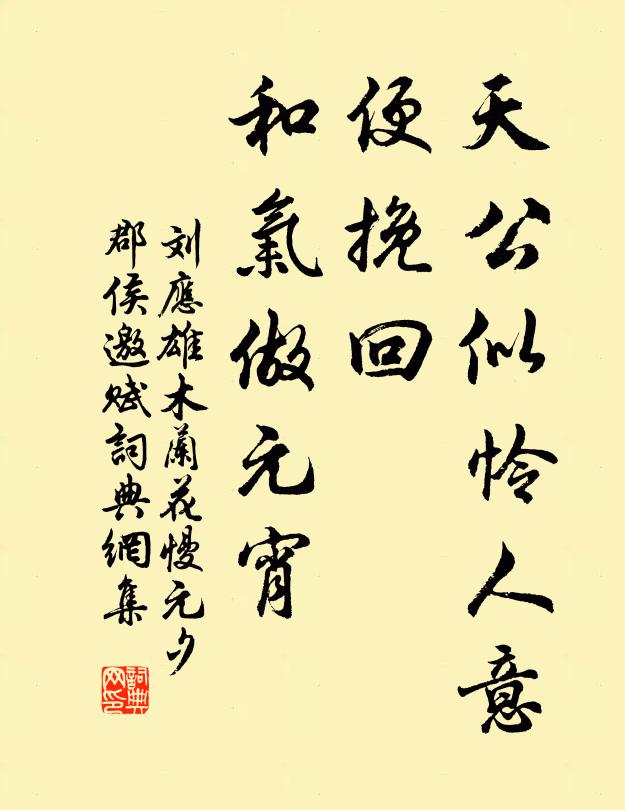 天公似怜人意
便挽回
和氣做元宵
刘應雄木蘭花慢元夕
郡侯邀赋詞典網集
詞典
网印